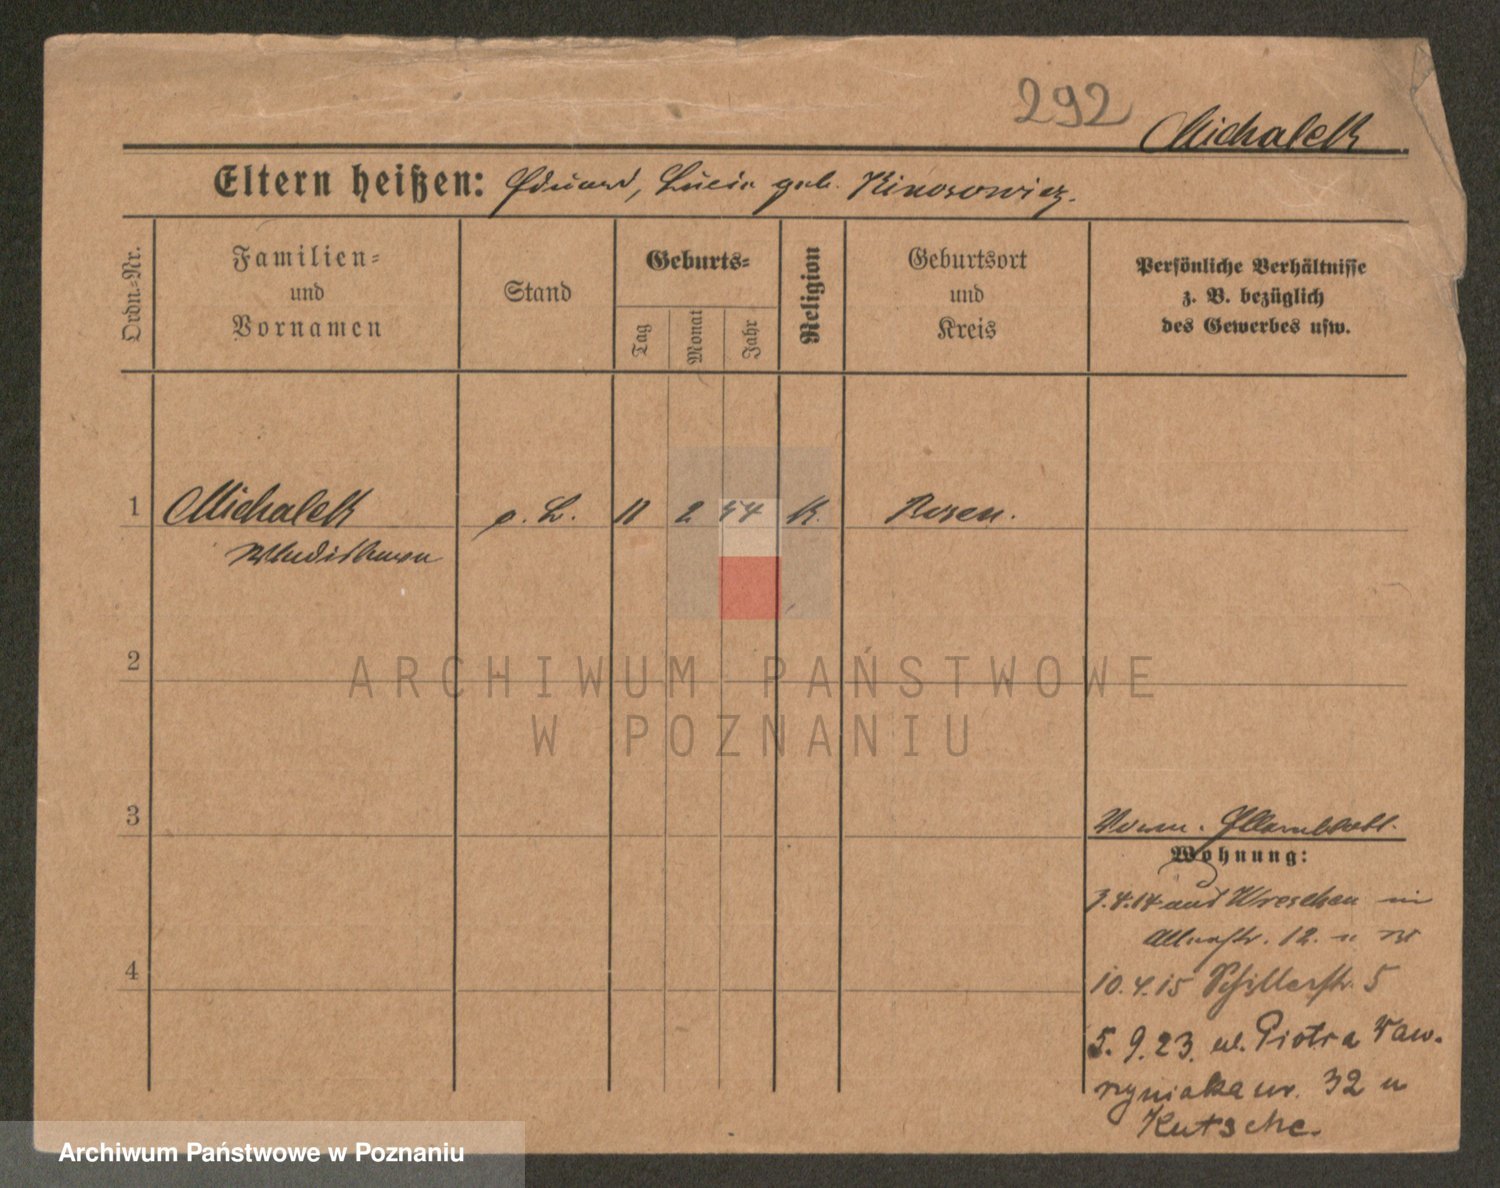 292
Michalek
Eltern heißen: Eduard, Lucia geb.
Ordn.-Nr.
Familien=
und
Vornamen
Stand
Geburts=
Tag
Monat
Jahr
Religion
Geburtsort
und
Kreis
Persönliche Verhältnisse
z. B. bezüglich
des Gewerbes usw.
1 Michalek o. L. 11 2 54 K. Posen.
2
3
Wohnung:
3.4.14 aus Wreschen in
12.
4
10.4.15 Schillerstr. 5
5.9.23. ul. Piotra Waw-
rzyniaka nr. 32 u
Kutsche.
ARCHIWUM PAŃSTWOWE
W POZNANIU
Archiwum Państwowe w Poznaniu